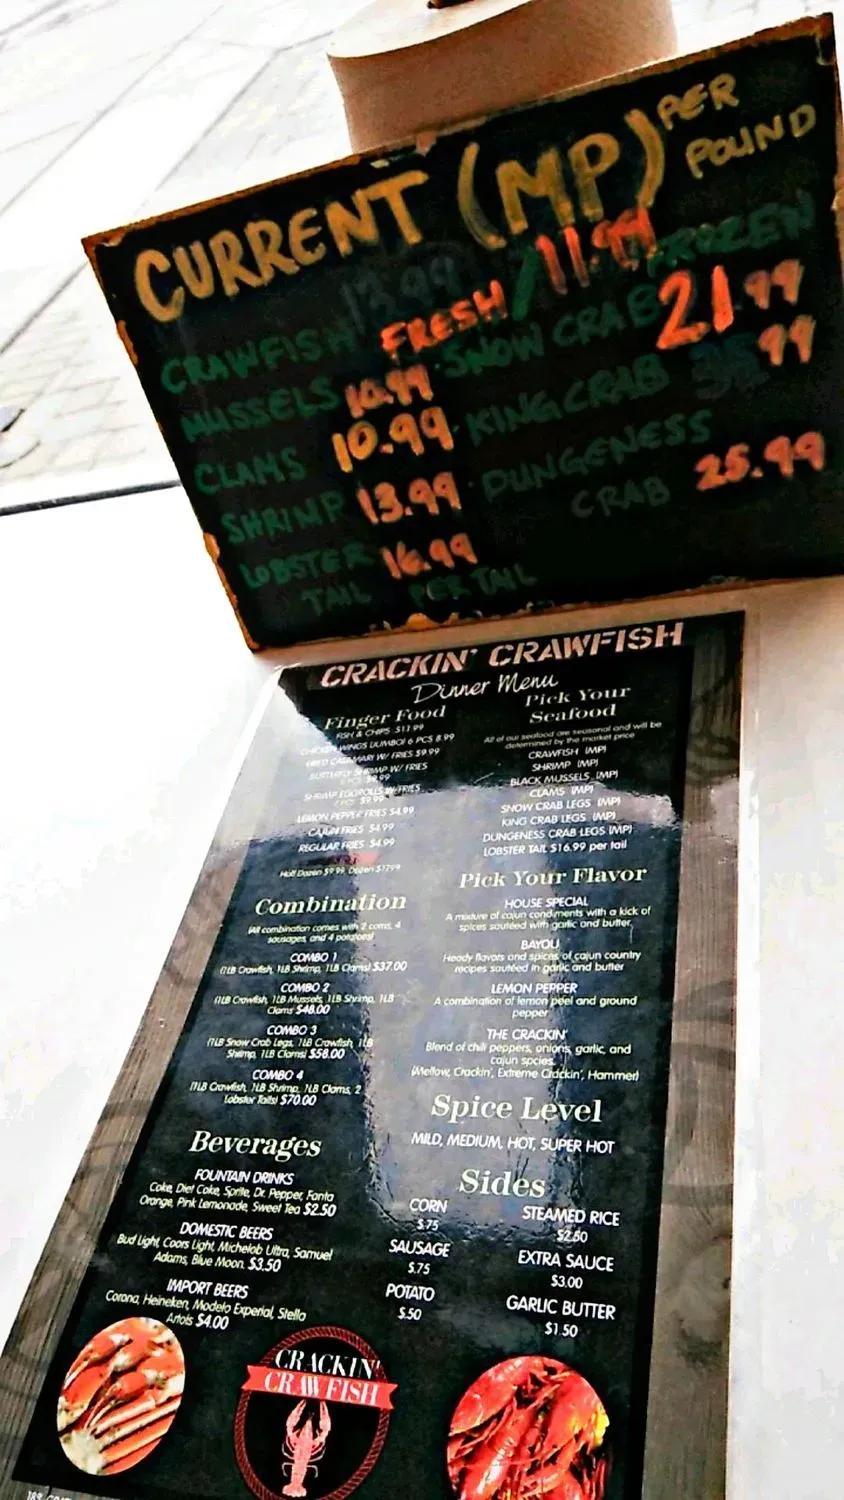 CURRENT (MP) PER POUND
CRAWFISH 13.99 FRESH / 11.99 FROZEN
MUSSELS 10.99
CLAMS 10.99
SHRIMP 13.99
LOBSTER 16.99
TAIL PER TAIL
· SNOW CRAB 21.99
· KING CRAB 99
· DUNGENESS
CRAB 25.99
CRACKIN' CRAWFISH
Dinner Menu
Finger Food
FISH & CHIPS $11.99
CHICKEN WINGS (JUMBO) 6 PCS 8.99
FRIED CALAMARI W/ FRIES $9.99
BUTTERFLY SHRIMP W/ FRIES
PCS $9.99
SHRIMP EGGROLLS W/FRIES
PCS $9.99
LEMON PEPPER FRIES $4.99
CAJUN FRIES $4.99
REGULAR FRIES $4.99
Half Dozen $9.99, Dozen $17.99
Combination
(All combination comes with 2 corns, 4
sausages, and 4 potatoes)
COMBO 1
(1LB Crawfish, 1LB Shrimp, 1LB Clams) $37.00
COMBO 2
(1LB Crawfish, 1LB Mussels, 1LB Shrimp, 1LB
Clams $48.00
COMBO 3
(1LB Snow Crab Legs, 1LB Crawfish, 1LB
Shrimp, 1LB Clams) $58.00
COMBO 4
(1LB Crawfish, 1LB Shrimp, 1LB Clams, 2
Lobster Tails) $70.00
Beverages
FOUNTAIN DRINKS
Coke, Diet Coke, Sprite, Dr. Pepper, Fanta
Orange, Pink Lemonade, Sweet Tea $2.50
DOMESTIC BEERS
Bud Light, Coors Light, Michelob Ultra, Samuel
Adams, Blue Moon. $3.50
IMPORT BEERS
Corona, Heineken, Modelo Experial, Stella
Artois $4.00
Pick Your
Seafood
All of our seafood are seasonal and will be
determined by the market price
CRAWFISH (MP)
SHRIMP (MP)
BLACK MUSSELS (MP)
CLAMS (MP)
SNOW CRAB LEGS (MP)
KING CRAB LEGS (MP)
DUNGENESS CRAB LEGS (MP)
LOBSTER TAIL $16.99 per tail
Pick Your Flavor
HOUSE SPECIAL
A mixture of cajun condiments with a kick of
spices sautéed with garlic and butter
BAYOU
Heady flavors and spices of cajun country
recipes sautéed in garlic and butter
LEMON PEPPER
A combination of lemon peel and ground
pepper
THE CRACKIN'
Blend of chili peppers, onions, garlic, and
cajun spcies.
(Mellow, Crackin', Extreme Crackin', Hammer)
Spice Level
MILD, MEDIUM, HOT, SUPER HOT
Sides
CORN
$.75
SAUSAGE
$.75
POTATO
$.50
STEAMED RICE
$2.50
EXTRA SAUCE
$3.00
GARLIC BUTTER
$1.50
CRACKIN'
CRAWFISH